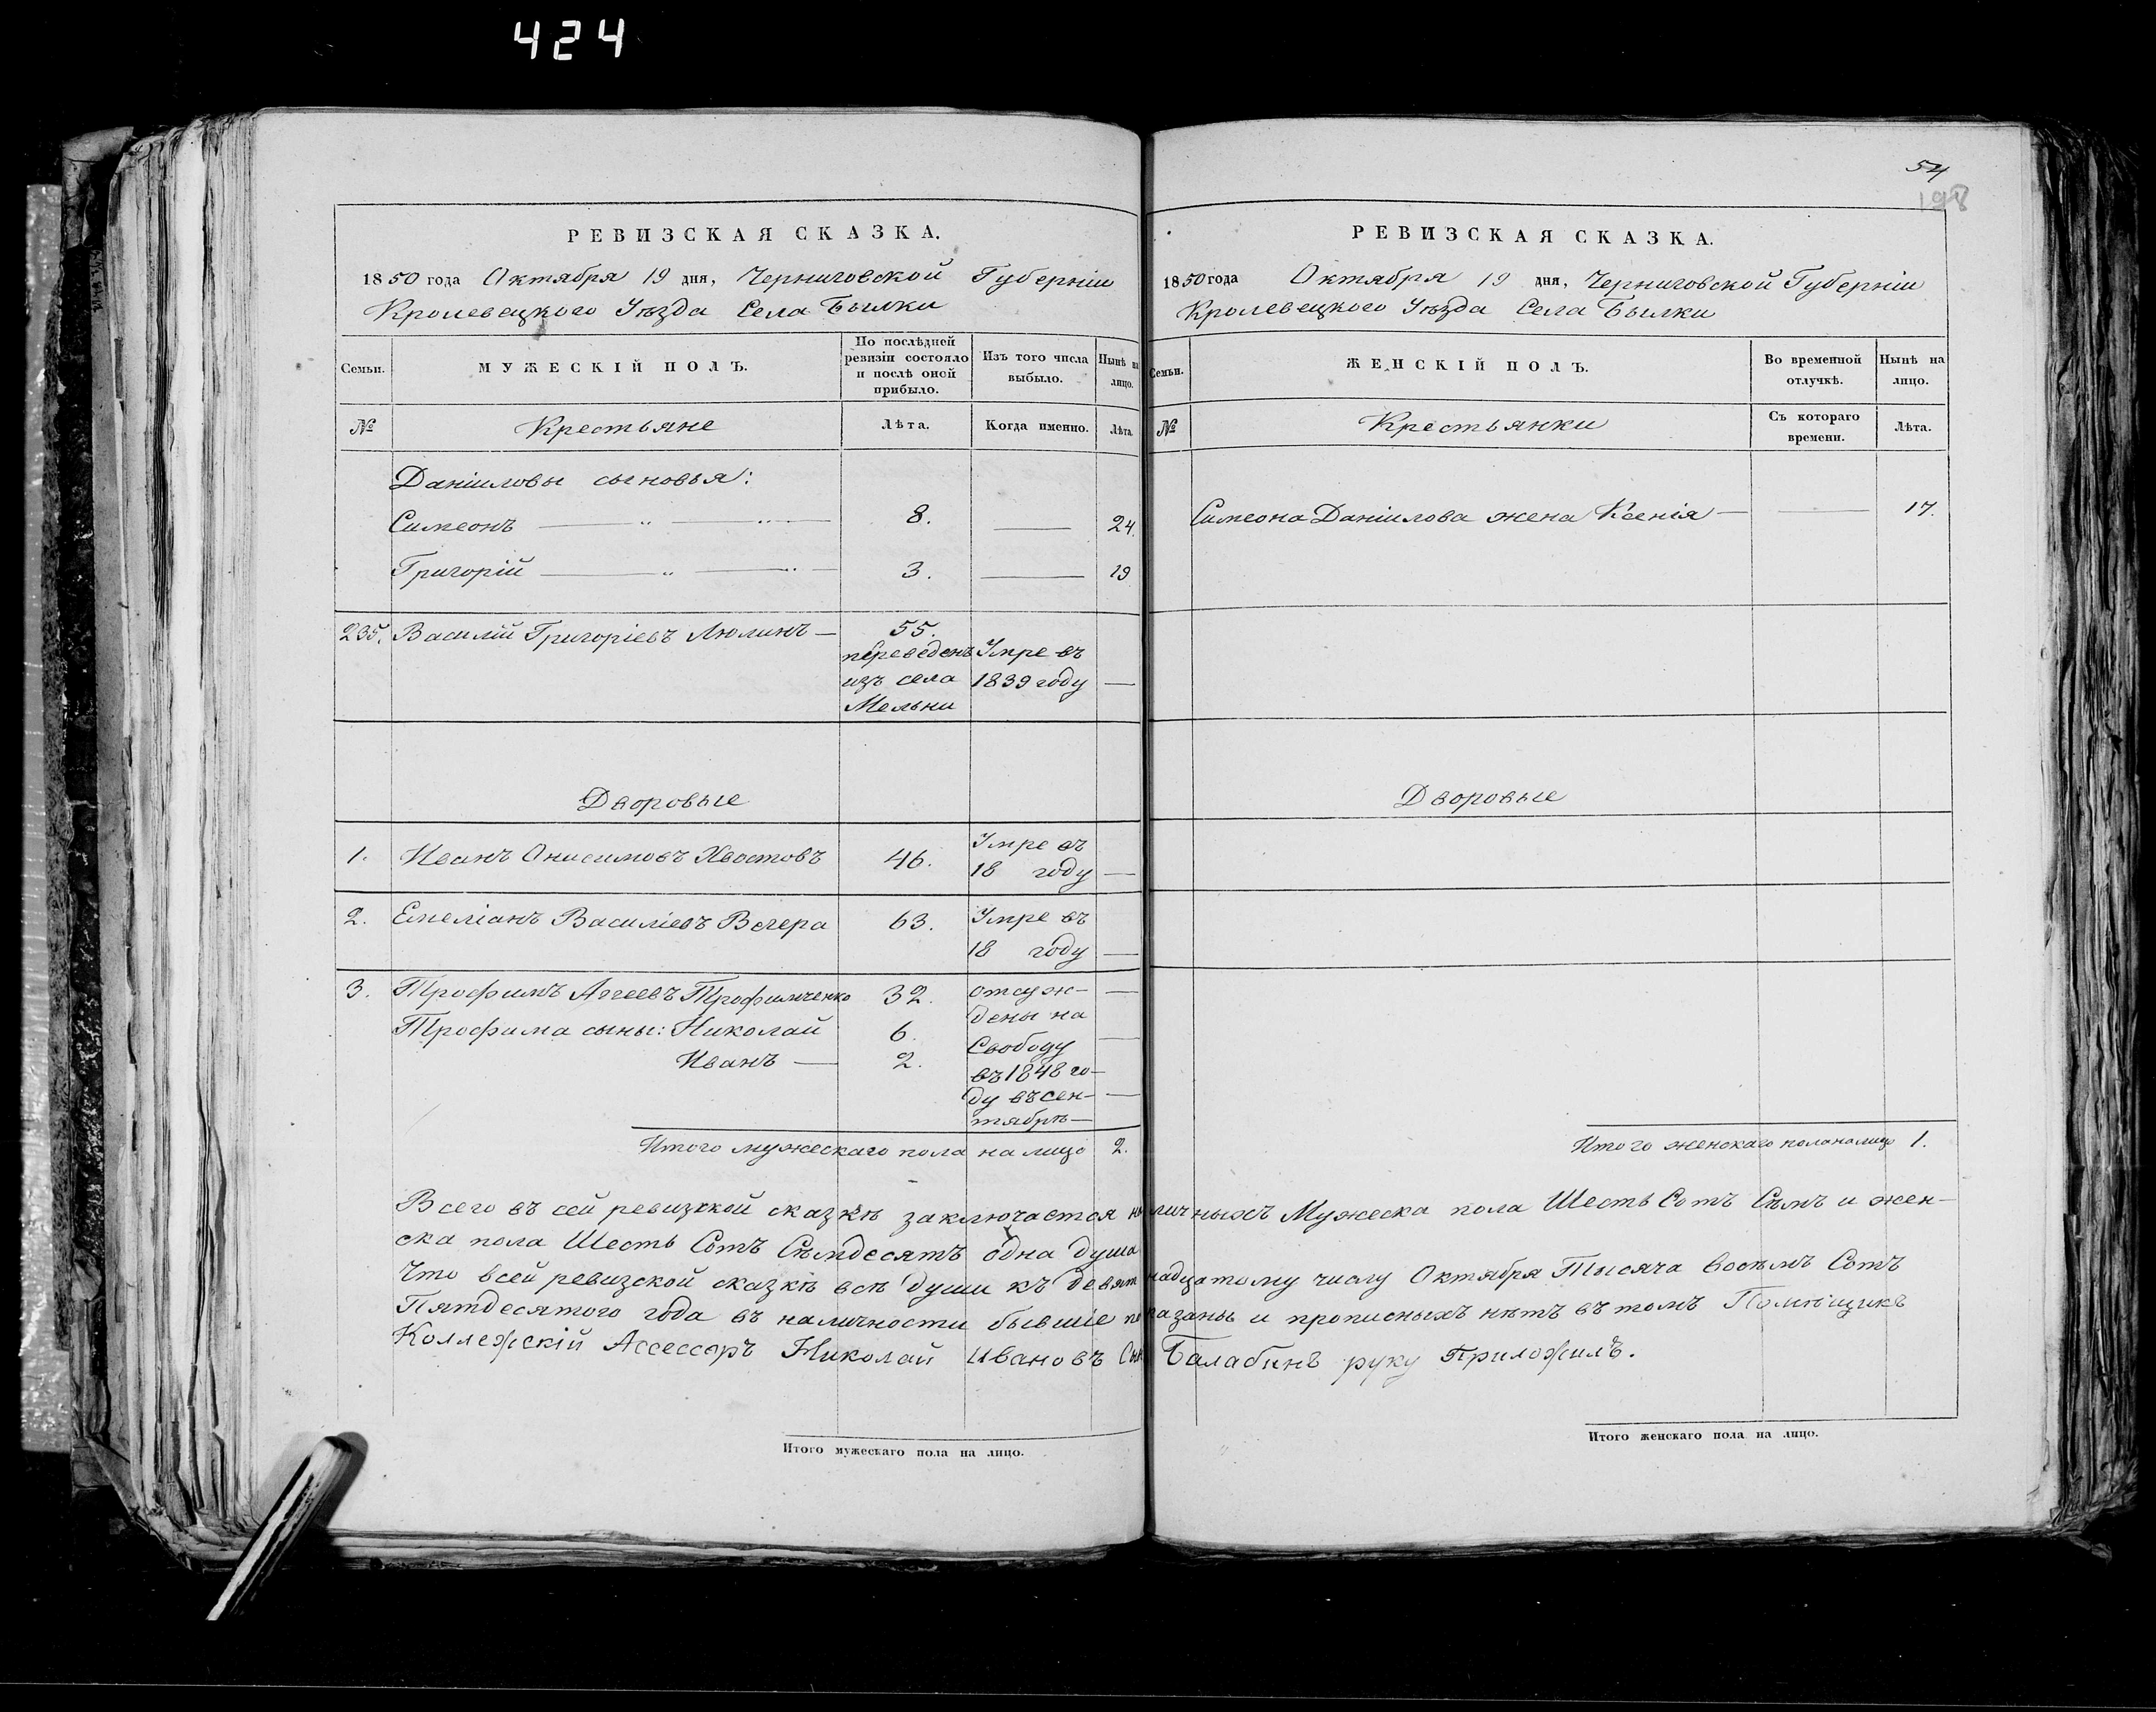 424
РЕВИЗСКАЯ СКАЗКА.
1850 года Октября 19 дня, Черниговской Губерніи
Кролевецкого Уѣзда Села Былки
Семьи.
МУЖЕСКІЙ ПОЛЪ.
По послѣдней
ревизіи состояло
и послѣ оной
прибыло.
Изъ того числа
выбыло.
Нынѣ на
лицо.
№
Крестьяне
Лѣта.
Когда именно.
Лѣта.
Даніиловы сыновья:
Симеонъ — „ — „ — 8. — 24.
Григорій — „ — „ — 3. — 19
235. Василій Григоріевъ Люлинъ — 55.
переведенъ Умре въ
изъ села 1839 году —
Мельни
Дворовые
1. Иванъ Онисимовъ Хвостовъ 46. Умре въ
18 году —
2. Емеліанъ Василіевъ Вечера 63. Умре въ
18 году —
3. Трофимъ Агеевъ Трофимченко 32. отсуж- —
Трофима сыны: Николай 6. дены на
Свободу —
Иванъ — 2. въ 1848 го-
ду въ сен- —
тябрѣ —
Итого мужескаго пола на лицо 2.
54
198
РЕВИЗСКАЯ СКАЗКА.
1850 года Октября 19 дня, Черниговской Губерніи
Кролевецкого Уѣзда Села Былки
Семьи.
ЖЕНСКІЙ ПОЛЪ.
Во временной
отлучкѣ.
Нынѣ на
лицо.
№
Крестьянки
Съ котораго
времени.
Лѣта.
Симеона Даніилова жена Ксенія — — 17.
Дворовые
Итого женскаго пола на лицо 1.
Всего въ сей ревизкой сказкѣ заключается наличныхъ Мужеска пола Шесть Сотъ Сѣмъ и жен-
ска пола Шесть Сотъ Сѣмдесятъ одна душа
Что всей ревизской сказкѣ всѣ души къ девятнадцатому числу Октября Тысяча восѣмъ Сотъ
Пятдесятого года въ наличности бывшіе показаны и прописныхъ нѣтъ въ томъ Помѣщикъ
Коллежскій Ассессоръ Николай Ивановъ Сынъ Балабинъ руку Приложилъ.
Итого мужескаго пола на лицо.
Итого женскаго пола на лицо.